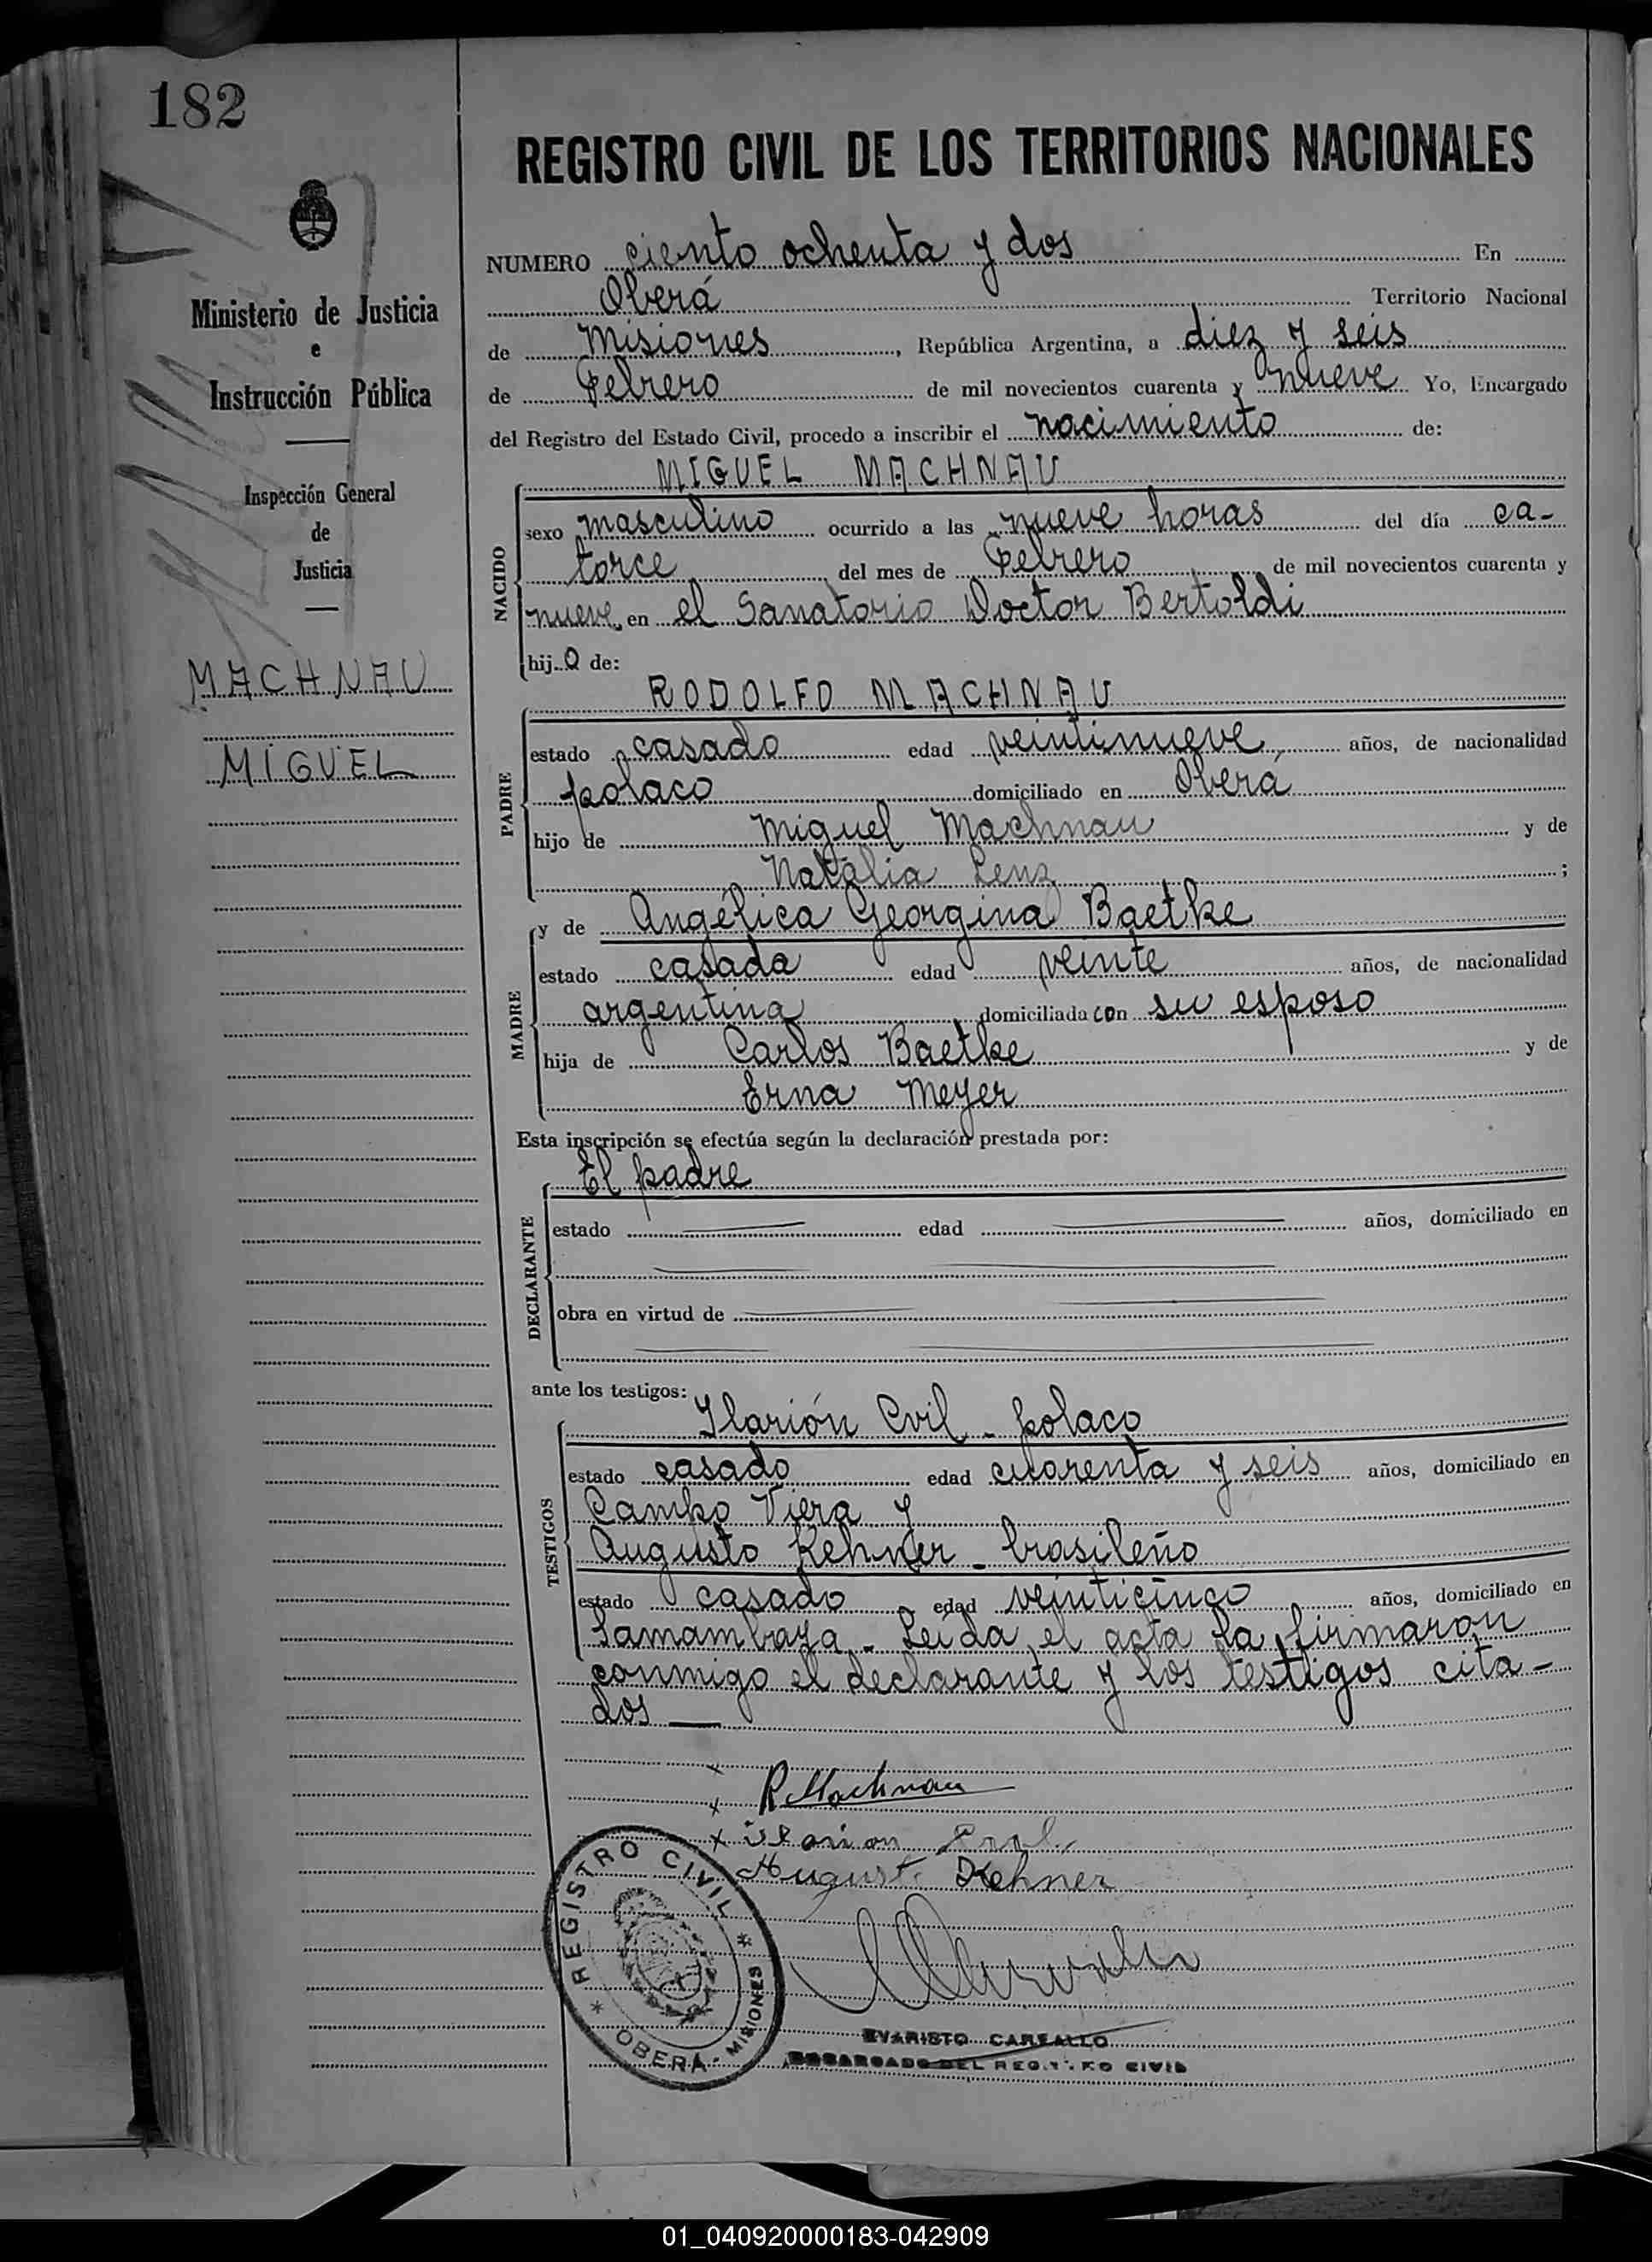 182
REGISTRO CIVIL DE LOS TERRITORIOS NACIONALES
Ministerio de Justicia
e
Instrucción Pública
Inspección General
de
Justicia
MACHNAU
MIGUEL
NUMERO ciento ochenta y dos En
Oberá Territorio Nacional
de Misiones, República Argentina, a diez y seis
de Febrero de mil novecientos cuarenta y nueve Yo, Encargado
del Registro del Estado Civil, procedo a inscribir el nacimiento de:
MIGUEL MACHNAU
NACIDO
sexo masculino ocurrido a las nueve horas del día ca-
torce del mes de Febrero de mil novecientos cuarenta y
nueve, en el Sanatorio Doctor Bertoldi
hijo de:
RODOLFO MACHNAU
PADRE
estado casado edad veintinueve años, de nacionalidad
polaco domiciliado en Oberá
hijo de Miguel Machnau y de
Natalia Lenz ;
y de Angélica Georgina Baetke
MADRE
estado casada edad veinte años, de nacionalidad
argentina domiciliada con su esposo
hija de Carlos Baetke y de
Erna Meyer
Esta inscripción se efectúa según la declaración prestada por:
El padre
DECLARANTE
estado edad años, domiciliado en
obra en virtud de
ante los testigos:
Ilarión Cvil - polaco
TESTIGOS
estado casado edad cuarenta y seis años, domiciliado en
Campo Viera y
Augusto Kehner - brasileño
estado casado edad veinticinco años, domiciliado en
Samambaya - Leida el acta la firmaron
conmigo el declarante y los testigos cita-
dos
R Machnau
August Kehner
REGISTRO CIVIL
OBERÁ - MISIONES
EVARISTO CARBALLO
ENCARGADO DEL REGISTRO CIVIL
01_040920000183-042909